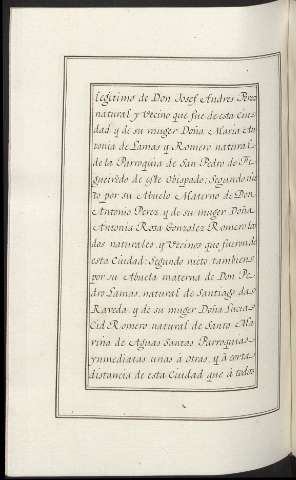 legitimo de Don Josef Andres Perez
natural y Vecino que fue de esta Ciu
dad y de su muger Doña Maria An
tonia de Lamas y Romero natural
de la Parroquia de San Pedro de Fi
gueirêdo de este Obispado: Segundo nie
to por su Abuelo Materno de Don
Antonio Perez y de su muger Doña
Antonia Rosa Gonzalez Romero la
dos naturales y Vecinos que fueron de
esta Ciudad: Segundo nieto tambien
por su Abuela materna de Don Pe
dro Lamas natural de Santiago da
Raveda y de su muger Doña Lucia
Cid Romero natural de Santa Ma
rina de Aguas Santas Parroquias
ynmediatas unas á otras, y á corta
distancia de esta Ciudad que á todos